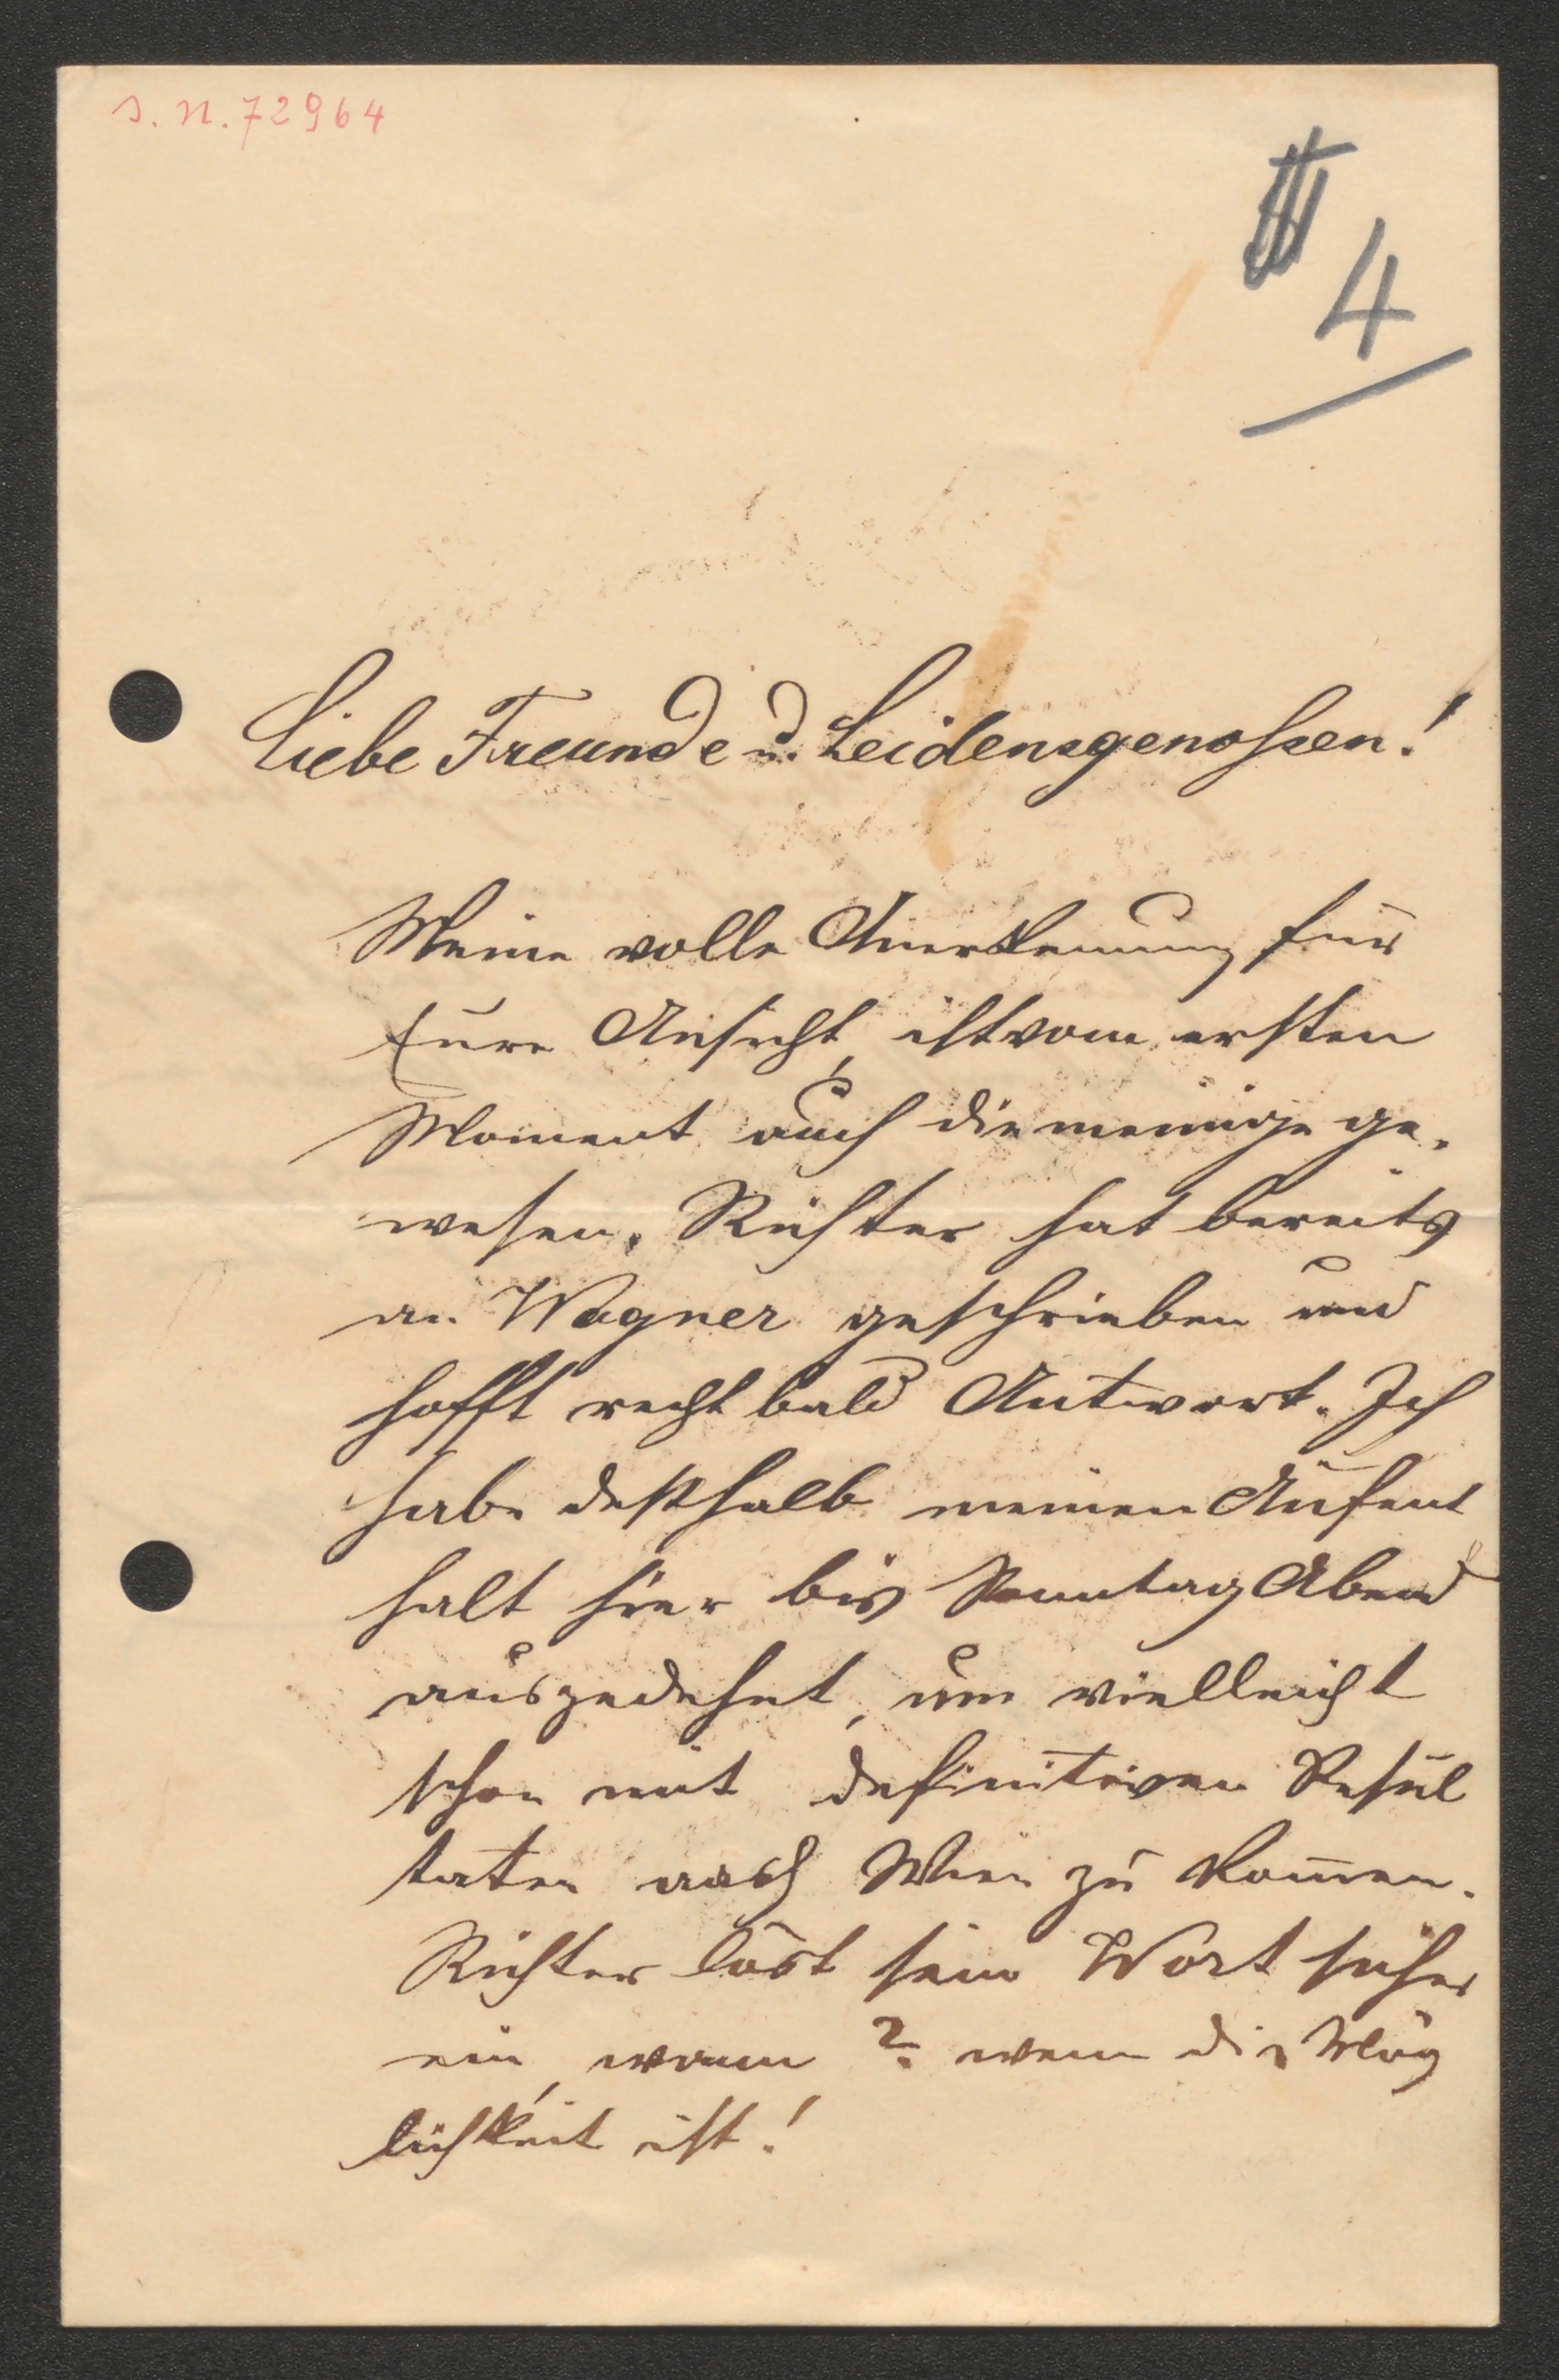 I. N. 72964
4
Liebe Freunde u. Leidensgenossen!
Meine volle Anerkennung für
Eure Ansicht, ist vom ersten
Moment auch die meinige ge-
wesen. Richter hat bereits
an Wagner geschrieben und
hofft recht bald Antwort. Ich
habe deßhalb meinen Aufent
halt hier bis Sonntag Abend
ausgedehnt, um vielleicht
schon mit definitiven Resul
taten nach Wien zu kommen.
Richter löst sein Wort sicher
ein, wann ? wenn die Mög
lichkeit ist!